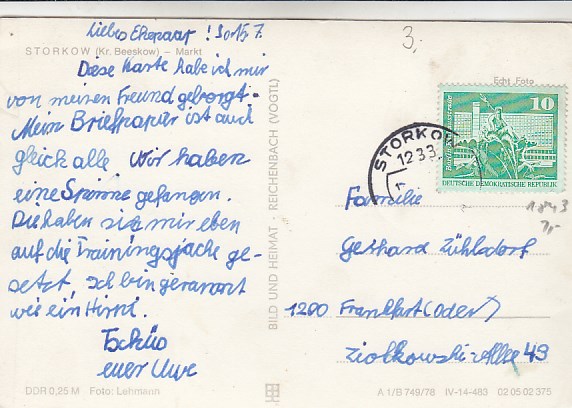 Liebes Ehepaar! So 15.7.
STORKOW (Kr. Beeskow) – Markt
Diese Karte habe ich mir
von meinen Freund geborgt.
Mein Briefpapier ist auch
gleich alle Wir haben
eine Spinne gefangen.
Die haben sie mir eben
auf die Trainingsjacke ge-
setzt. Ich bin gerannt
wie ein Hirni.
Tschüs
euer Uwe
DDR 0,25 M Foto: Lehmann
BILD UND HEIMAT · REICHENBACH (VOGTL)
3,-
Echt Foto
10
DEUTSCHE DEMOKRATISCHE REPUBLIK
STORKOW
1233
1
Familie
Gerhard Zühlsdorf
1200 Frankfurt (Oder)
Ziolkowski-Allee 49
A 1/B 749/78 IV-14-483 02 05 02 375